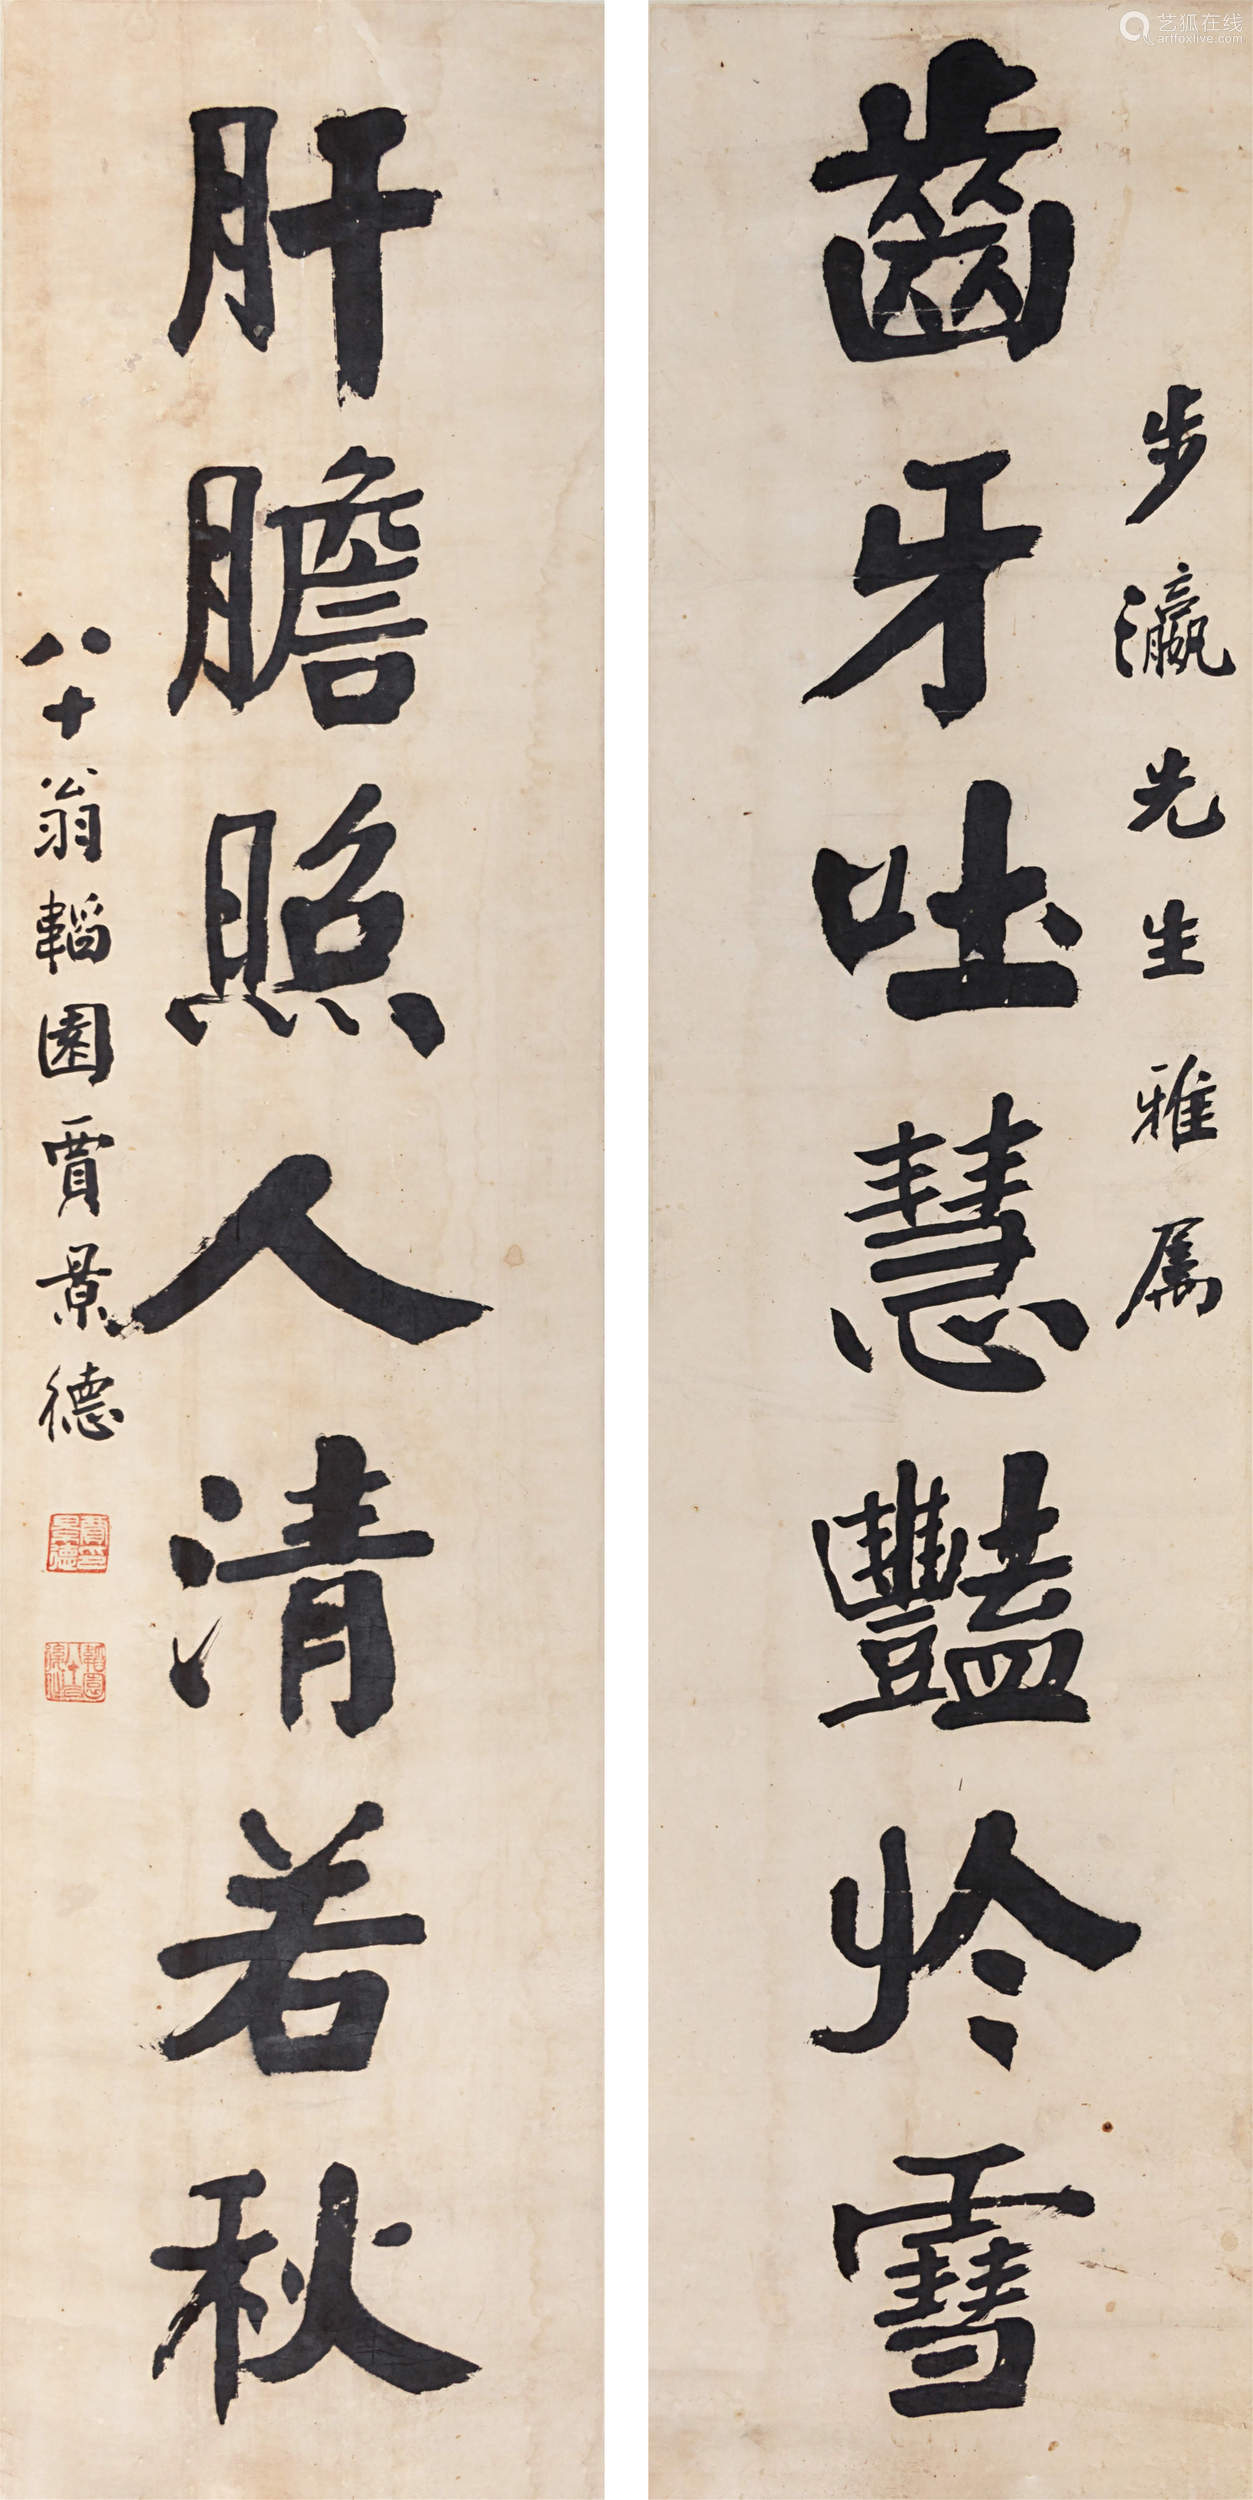 步瀛先生雅屬
齒牙吐慧豔於雪
肝膽照人清若秋
八十翁韜園賈景德
賈景德印
艺狐在线
artfoxlive.com